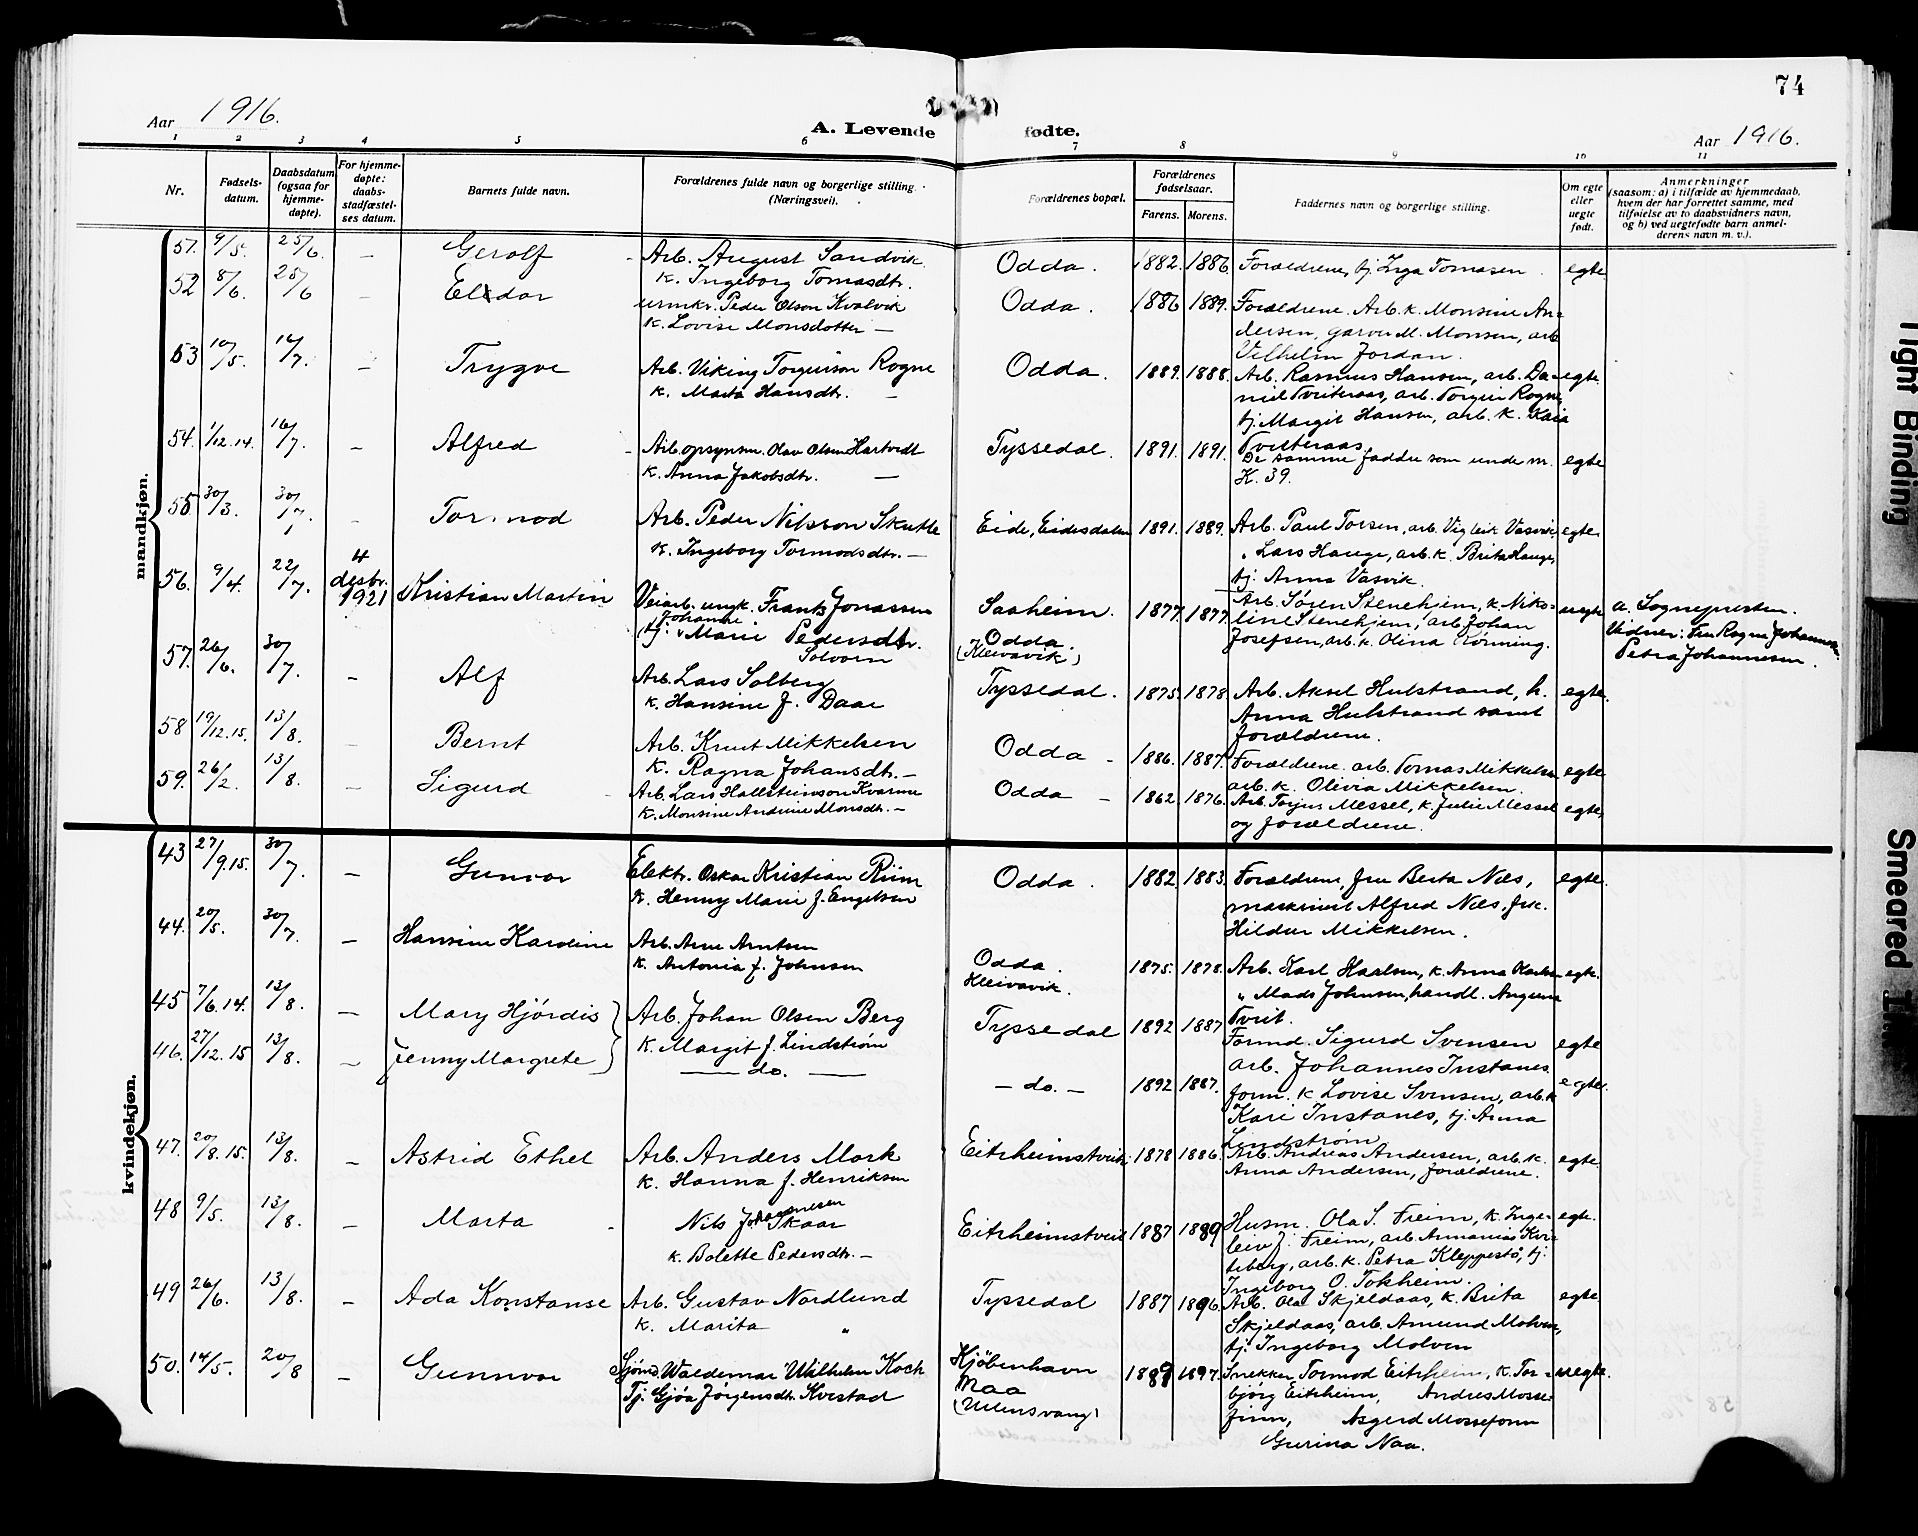 74
Aar 1916.
A. Levende fødte.
Aar 1916.
1 2 3 4 5 6 7 8 9 10 11
Nr.
Fødsels-
datum.
Daabsdatum
(ogsaa for
hjemme-
døpte).
For hjemme-
døpte:
daabs-
stadfæstel-
ses datum.
Barnets fulde navn.
Forældrenes fulde navn og borgerlige stilling
(Næringsvei).
Forældrenes bopæl.
Forældrenes
fødselsaar.
Farens. Morens.
Faddernes navn og borgerlige stilling.
Om egte
eller
uegte
født.
Anmerkninger
(saasom: a) i tilfælde av hjemmedaab,
hvem der har forrettet samme, med
tilføielse av to daabsvidners navn,
og b) ved uegtefødte barn anmel-
derens navn m. v.).
mandkjøn.
51. 9/5. 25/6. – Gerolf – Arb. August Sandvik Odda. 1882. 1886. Forældrene, tj. Inga Tomasen. egte
k. Ingeborg Tomasdtr.
52 8/6. 25/6 – Eldor urmkr. Peder Olson Kvalvik Odda. 1886 1889. Forældrene. Arb. k. Monsine An-
k. Lovise Monsdotter – dersen, garver M. Monsen, arb.
Vilhelm Jordan.
53 10/5. 16/7. – Trygve Arb. Viking Torgeirson Rogne Odda. 1889. 1888. Arb. Rasmus Hansen, arb. Da- egte.
k. Marta Hansdtr. – niel Tveiteraas, arb. Torgeir Rogne,
tj. Margit Hansen, arb. k. Kaia
Tveiteraas
54. 1/12.14. 16/7. – Alfred – Arb.opsynsm. Olav Olsen Hartvedt Tyssedal. 1891. 1891. De samme faddre som under m. egte
k. Anna Jakobsdtr. – K. 39.
55 30/3. 30/7. – Tormod Arb. Peder Nilsson Skutle Eide, Eidesdalen 1891. 1889. Arb. Paul Torsen, arb. Vigleik Vasvik, egte
k. Ingeborg Tormodsdtr. – " Lars Hauge, arb. k. Brita Hauge,
tj. Anna Vasvik.
56. 9/4. 22/7. 4 desbr. 1921 Kristian Martin Veiarb. ungk. Frantz Jonassen Saaheim. 1877. 1877. Arb. Søren Stenehjem, k. Niko- uegte a. Sognepresten.
tj. Johanne Marie Pedersdtr. Odda. line Stenehjem, arb. Johan Vidner: Fru Ragna Johannesen.
Solvorn (Kleivavik) Josefsen, arb. k. Olina Rønning. Petra Johannesen.
57. 26/6. 30/7. – Alf Arb. Lars Solberg Tyssedal. 1875. 1878 Arb. Aksel Hulstrand, h. egte.
k. Hansine J. Daae Anna Hulstrand samt
forældrene.
58 19/12.15. 13/8. – Bernt Arb. Knut Mikkelsen Odda – 1886. 1887. Forældrene. arb. Tomas Mikkelsen egte
k. Ragna Johansdtr. – arb. k. Olivia Mikkelsen.
59. 26/2. 13/8. – Sigurd – Arb. Lars Hallsteinson Kvarme Odda – 1862. 1876. Arb. Torjus Messel, k. Julie Messel egte,
k. Monsine Andrine Monsdtr. – og forældrene.
kvindekjøn.
43 27/9.15. 30/7. – Gunvor Elektr. Oskar Kristian Riim Odda. 1882 1883. Forældrene, fru Berta Næs, egte.
k. Henny Marie f. Engelsen maskinist Alfred Næs, frk.
Hildur Mikkelsen.
44. 20/5. 30/7. – Hansine Karoline Arb. Arne Arntsen Odda. 1875. 1878. Arb. Karl Karlsen, k. Anna Karlsen egte.
k. Antonia f. Johnsen Kleivavik. " Mads Johnsen, handl.
Tveit.
45 7/6.14. 13/8. – Mary Hjørdis Arb. Johan Olsen Berg Tyssedal 1892 1887 Formd. Sigurd Svensen egte
k. Margit f. Lindstrøm arb. Johannes Instanes
46. 27/12.15 13/8. – Jenny Margrete – do. – – do. – 1892 1887. form. k Lovise Svensen, arb. k egte.
Kari Instanes, tj. Anna
Lindstrøm
47. 20/8.15. 13/8. – Astrid Ethel Arb. Anders Mork Eitrheimstveit 1878 1886. Arb. Andreas Andersen, arb. k. egte.
k. Hanna f. Henriksen Anna Andersen, forældrene.
48 9/5. 13/8. – Marta – Nils Johannesen Skaar Eitrheimstveit 1887 1889 Husm. Ola S. Freim, k. Inge- egte.
k. Bolette Pedersdtr. – leiv J. Freim, arb. Ananias Kvi-
teberg, arb. k. Petra Kleppestø, tj.
Ingeborg O. Tokheim.
49 26/6. 13/8. – Ada Konstanse Arb. Gustav Nordlund Tyssedal 1887 1896. Arb. Ola Skjeldaas, k. Brita egte
k. Marita " Skjeldaas, arb. Amund Molven,
tj. Ingeborg Molven
50. 14/5. 20/8 – Gunnvor Sjømd. Waldemar Wilhelm Koch Kjøbenhavn 1889 1897. Snekker Tormod Eitrheim, k. Tor- uegte.
Tj. Gjøa Jørgensdtr. Kvestad Naa bjørg Eitrheim, Andres Mosse-
(Ullensvang) finn, Asgerd Mossefonn
Gurina Naa.
Tight Binding
Smeared Ink